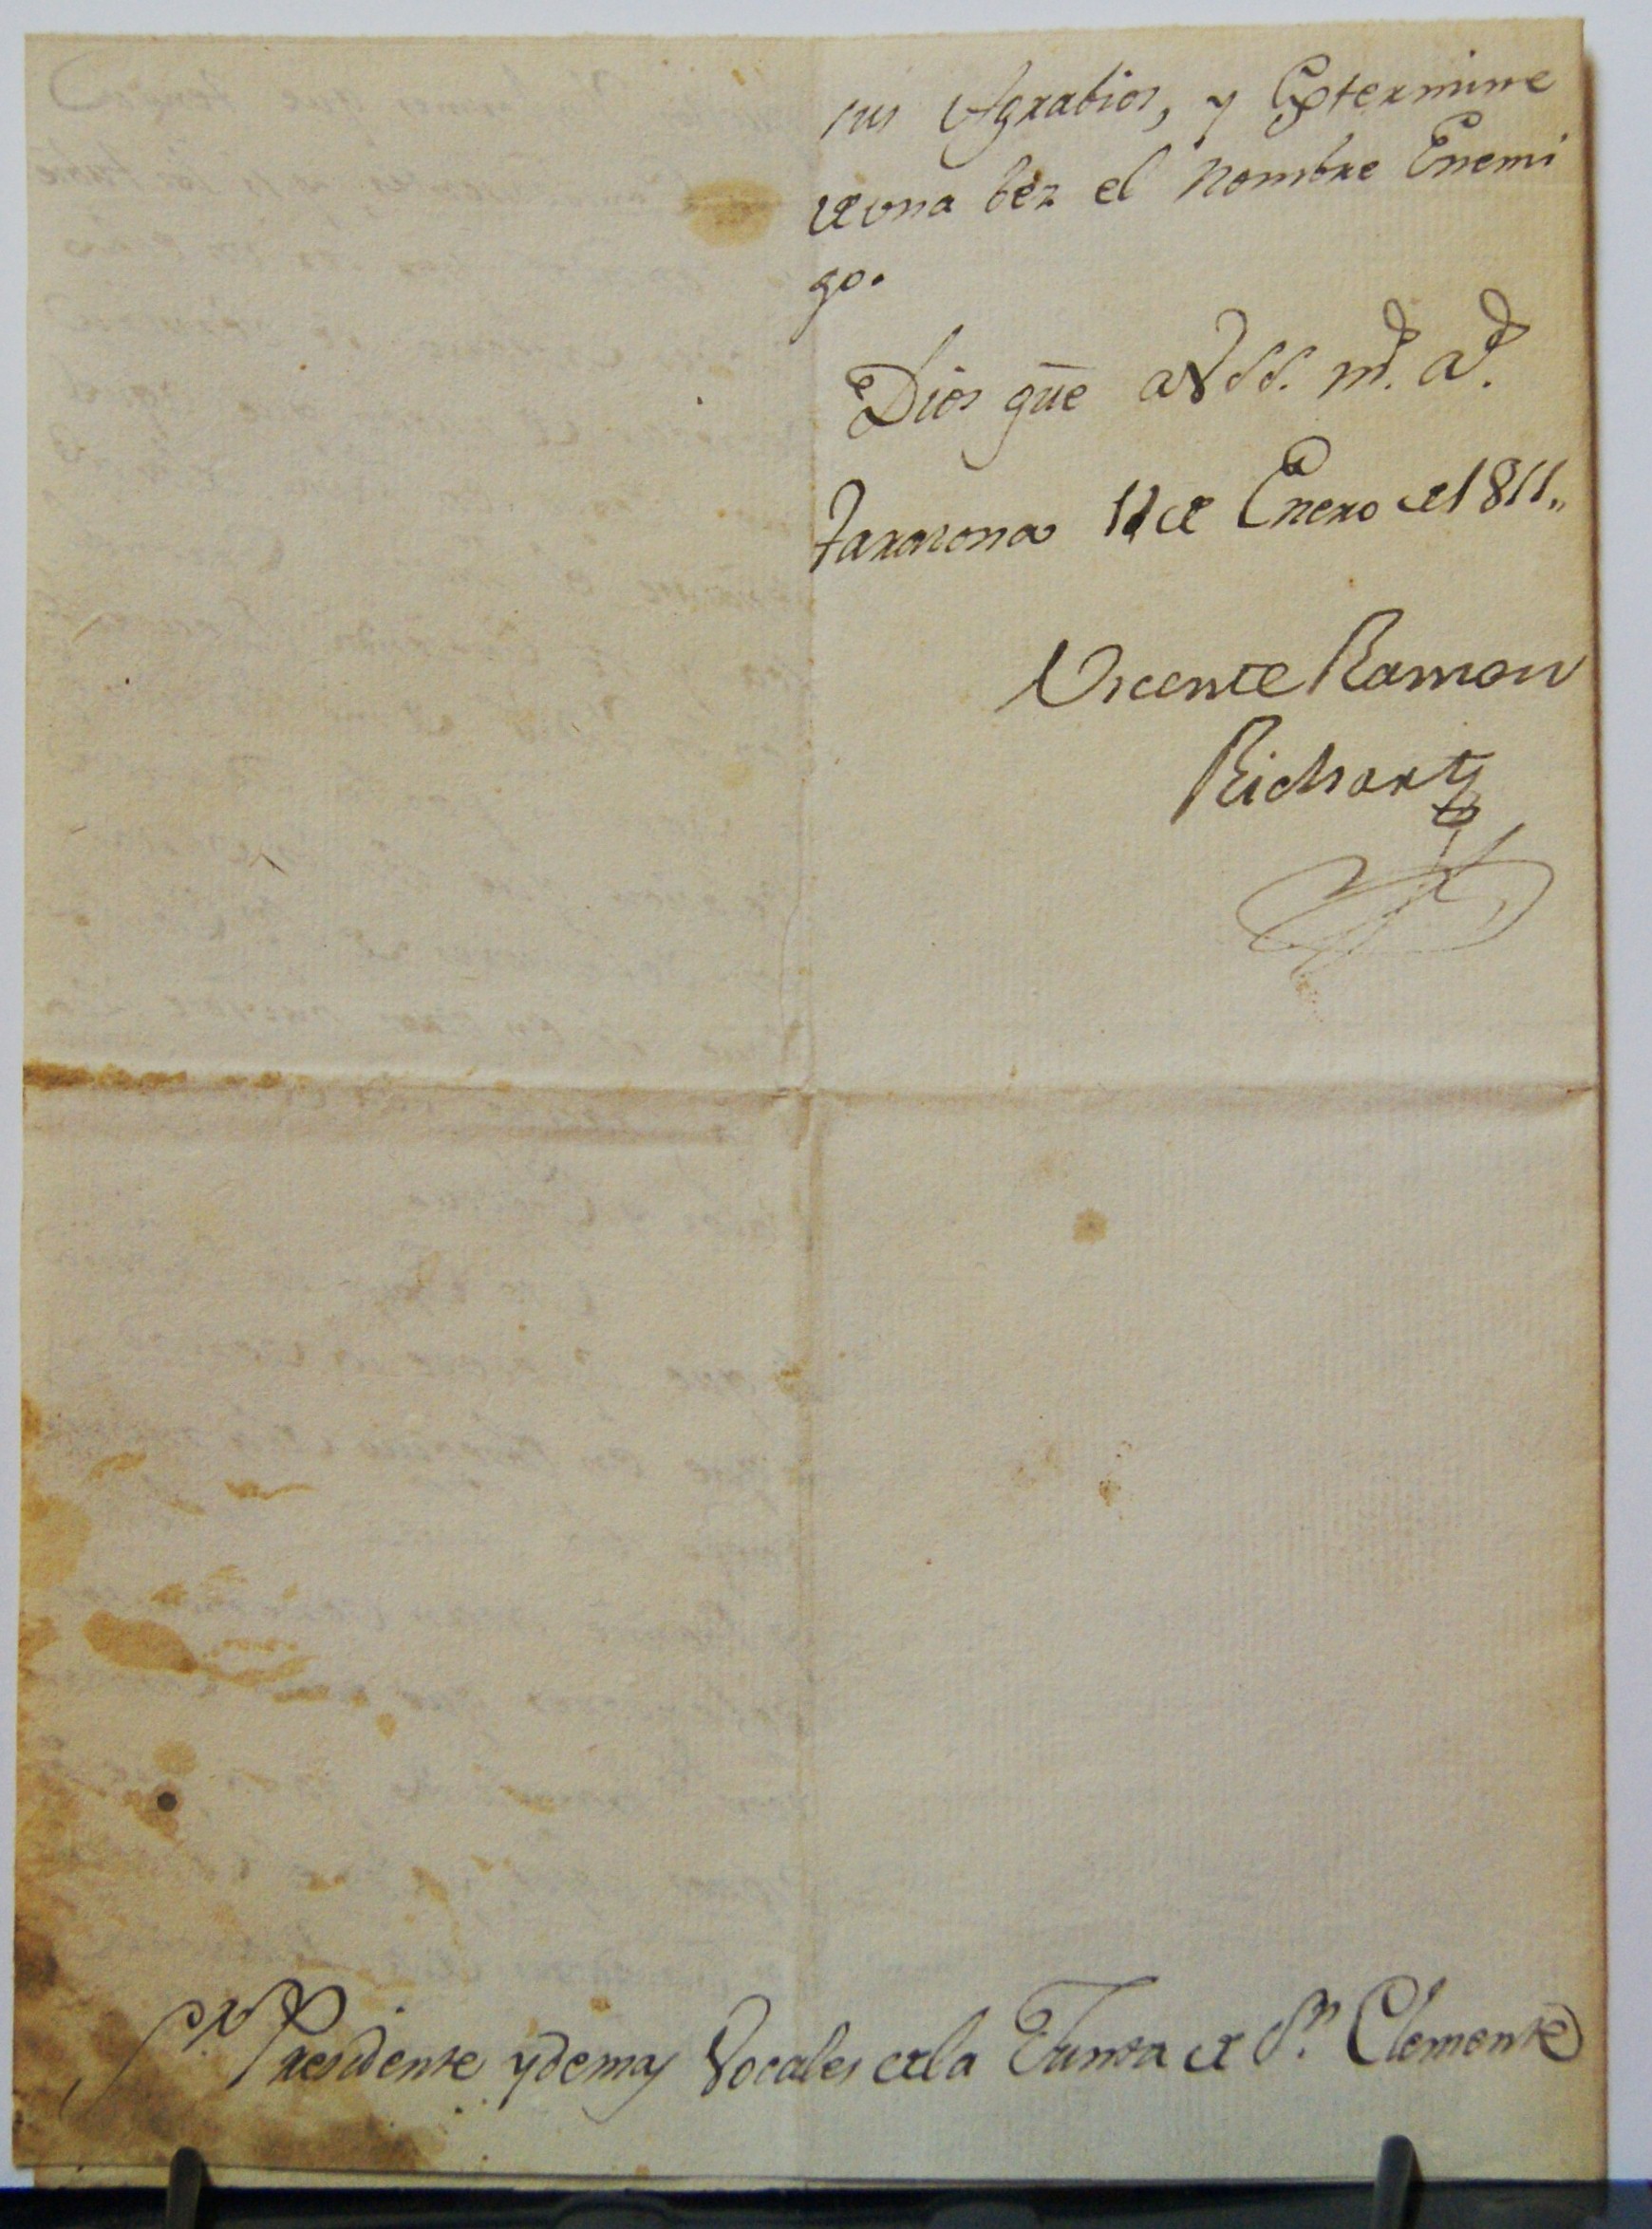 sus Agrabios, y Extermine
de una bez el nombre Enemi
go.
Dios gūe a VSS. ms. as.
Tarazona de Enero de 1811.,
Vicente Ramon
Richart
Sr. Presidente y demas Vocales de la Junta de Sn. Clemente